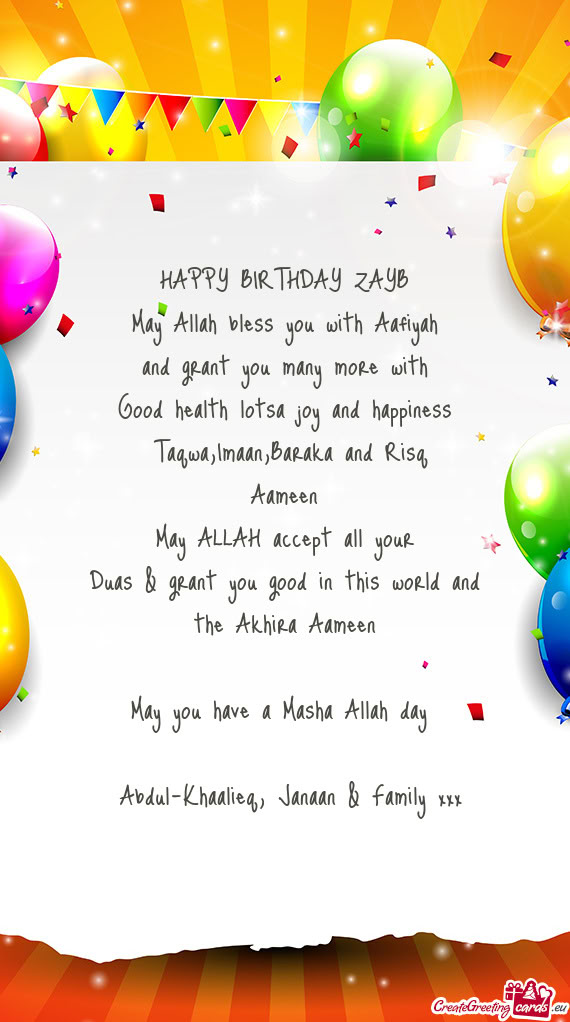 HAPPY BIRTHDAY ZAYB
May Allah bless you with Aafiyah
and grant you many more with
Good health lotsa joy and happiness
Taqwa,Imaan,Baraka and Risq
Aameen
May ALLAH accept all your
Duas & grant you good in this world and
the Akhira Aameen
May you have a Masha Allah day
Abdul-Khaalieq, Janaan & Family xxx
CreateGreetingcards.eu